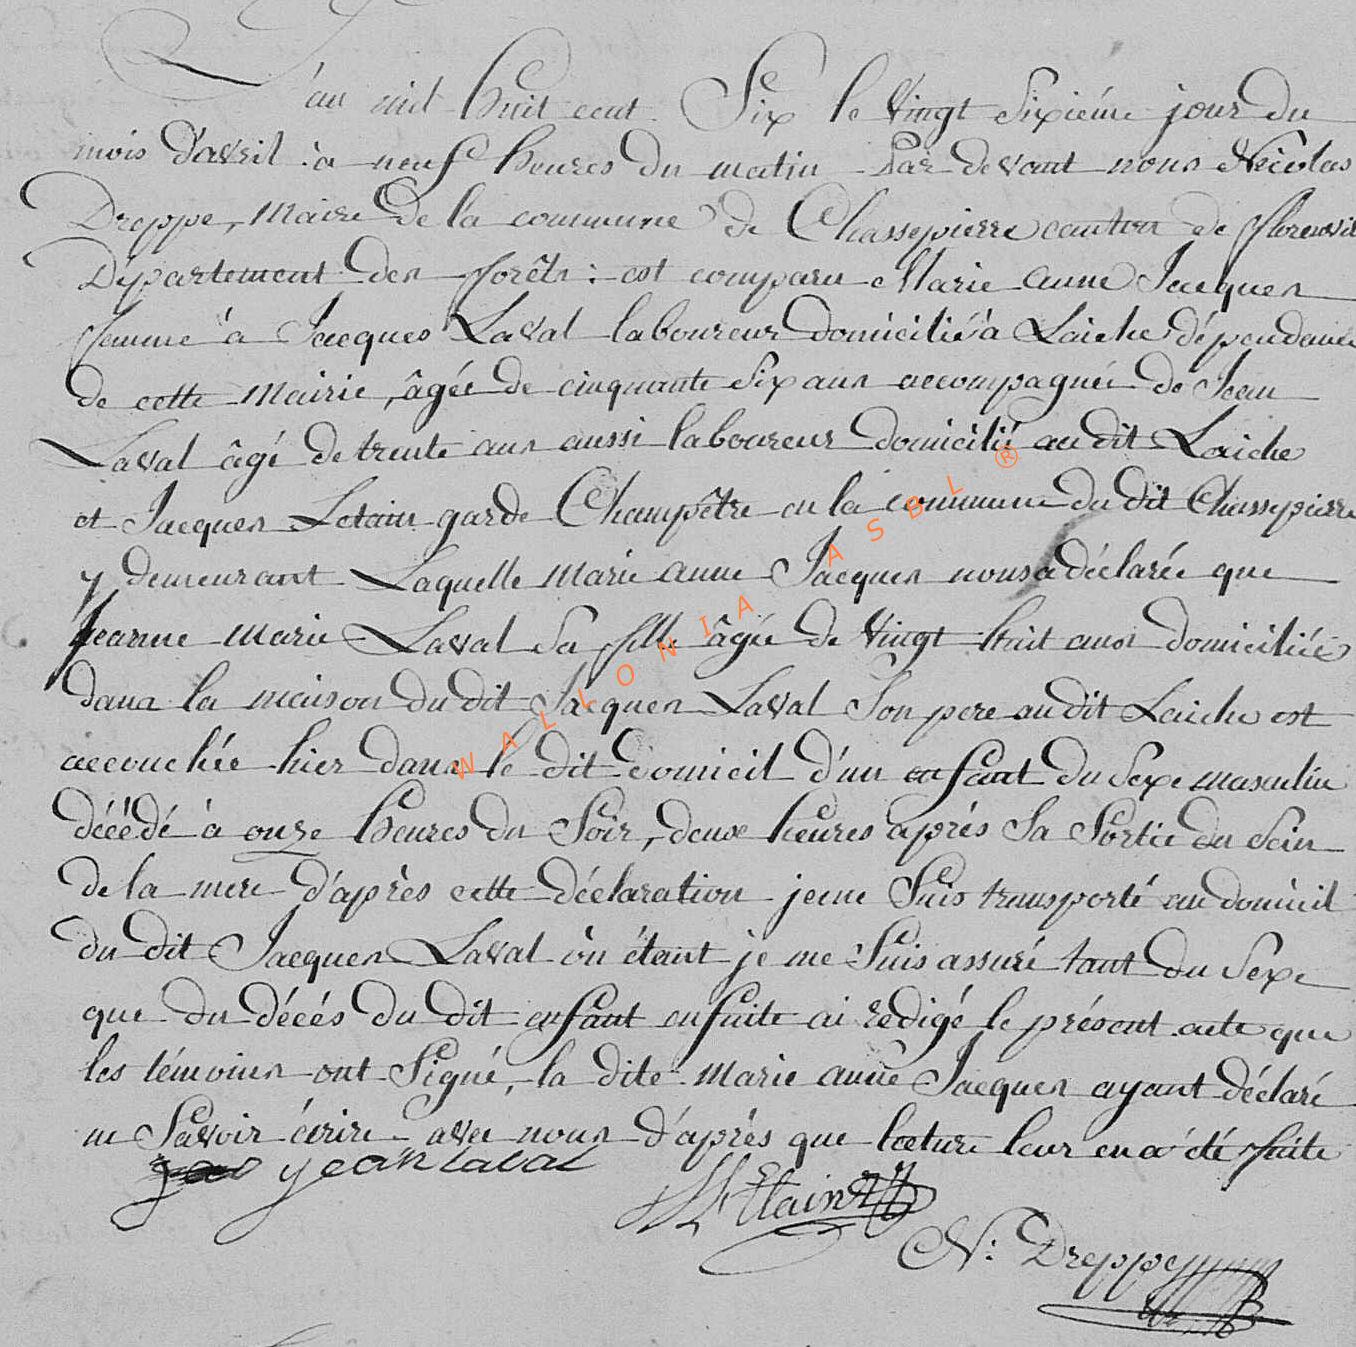 L'an mil huit cent Six le vingt Sixiéme jour du
mois d'avril à neuf heures du matin Par devant nous Nicolas
Dreppe, Maire de la commune de Chassepierre canton de florenvil
Département des forêts : est comparu Marie anne Jacques
femme à Jacques Laval laboureur domicilié à Laiche dépendance
de cette Mairie, âgée de cinquante Six ans accompagnée de Jean
Laval âgé de trente ans aussi laboureur domicilié au dit Laiche
et Jacques Letain garde Champêtre en la commune du dit Chassepierre
y demeurant Laquelle Marie anne Jacques nous a déclarée que
Jeanne Marie Laval Sa fille âgée de Vingt huit ans domiciliée
dans la maison du dit Jacques Laval Son pere au dit Laiche est
accouchée hier dans le dit domicil d'un enfant du Sexe masculin
décédé à onze heures du Soir, deux heures aprés Sa Sortie du Sein
de la mere d'après cette déclaration je me Suis transporté au domicil
du dit Jacques Laval où étant je me Suis assuré tant du Sexe
que du décés du dit enfant ensuite ai redigé le présent acte que
les témoins ont Signé, la dite Marie anne Jacques ayant déclaré
ne Savoir écrire avec nous d'aprés que lecture leur en a été faite
jean laval
Letain
N: Dreppe
WALLONIA ASBL ®